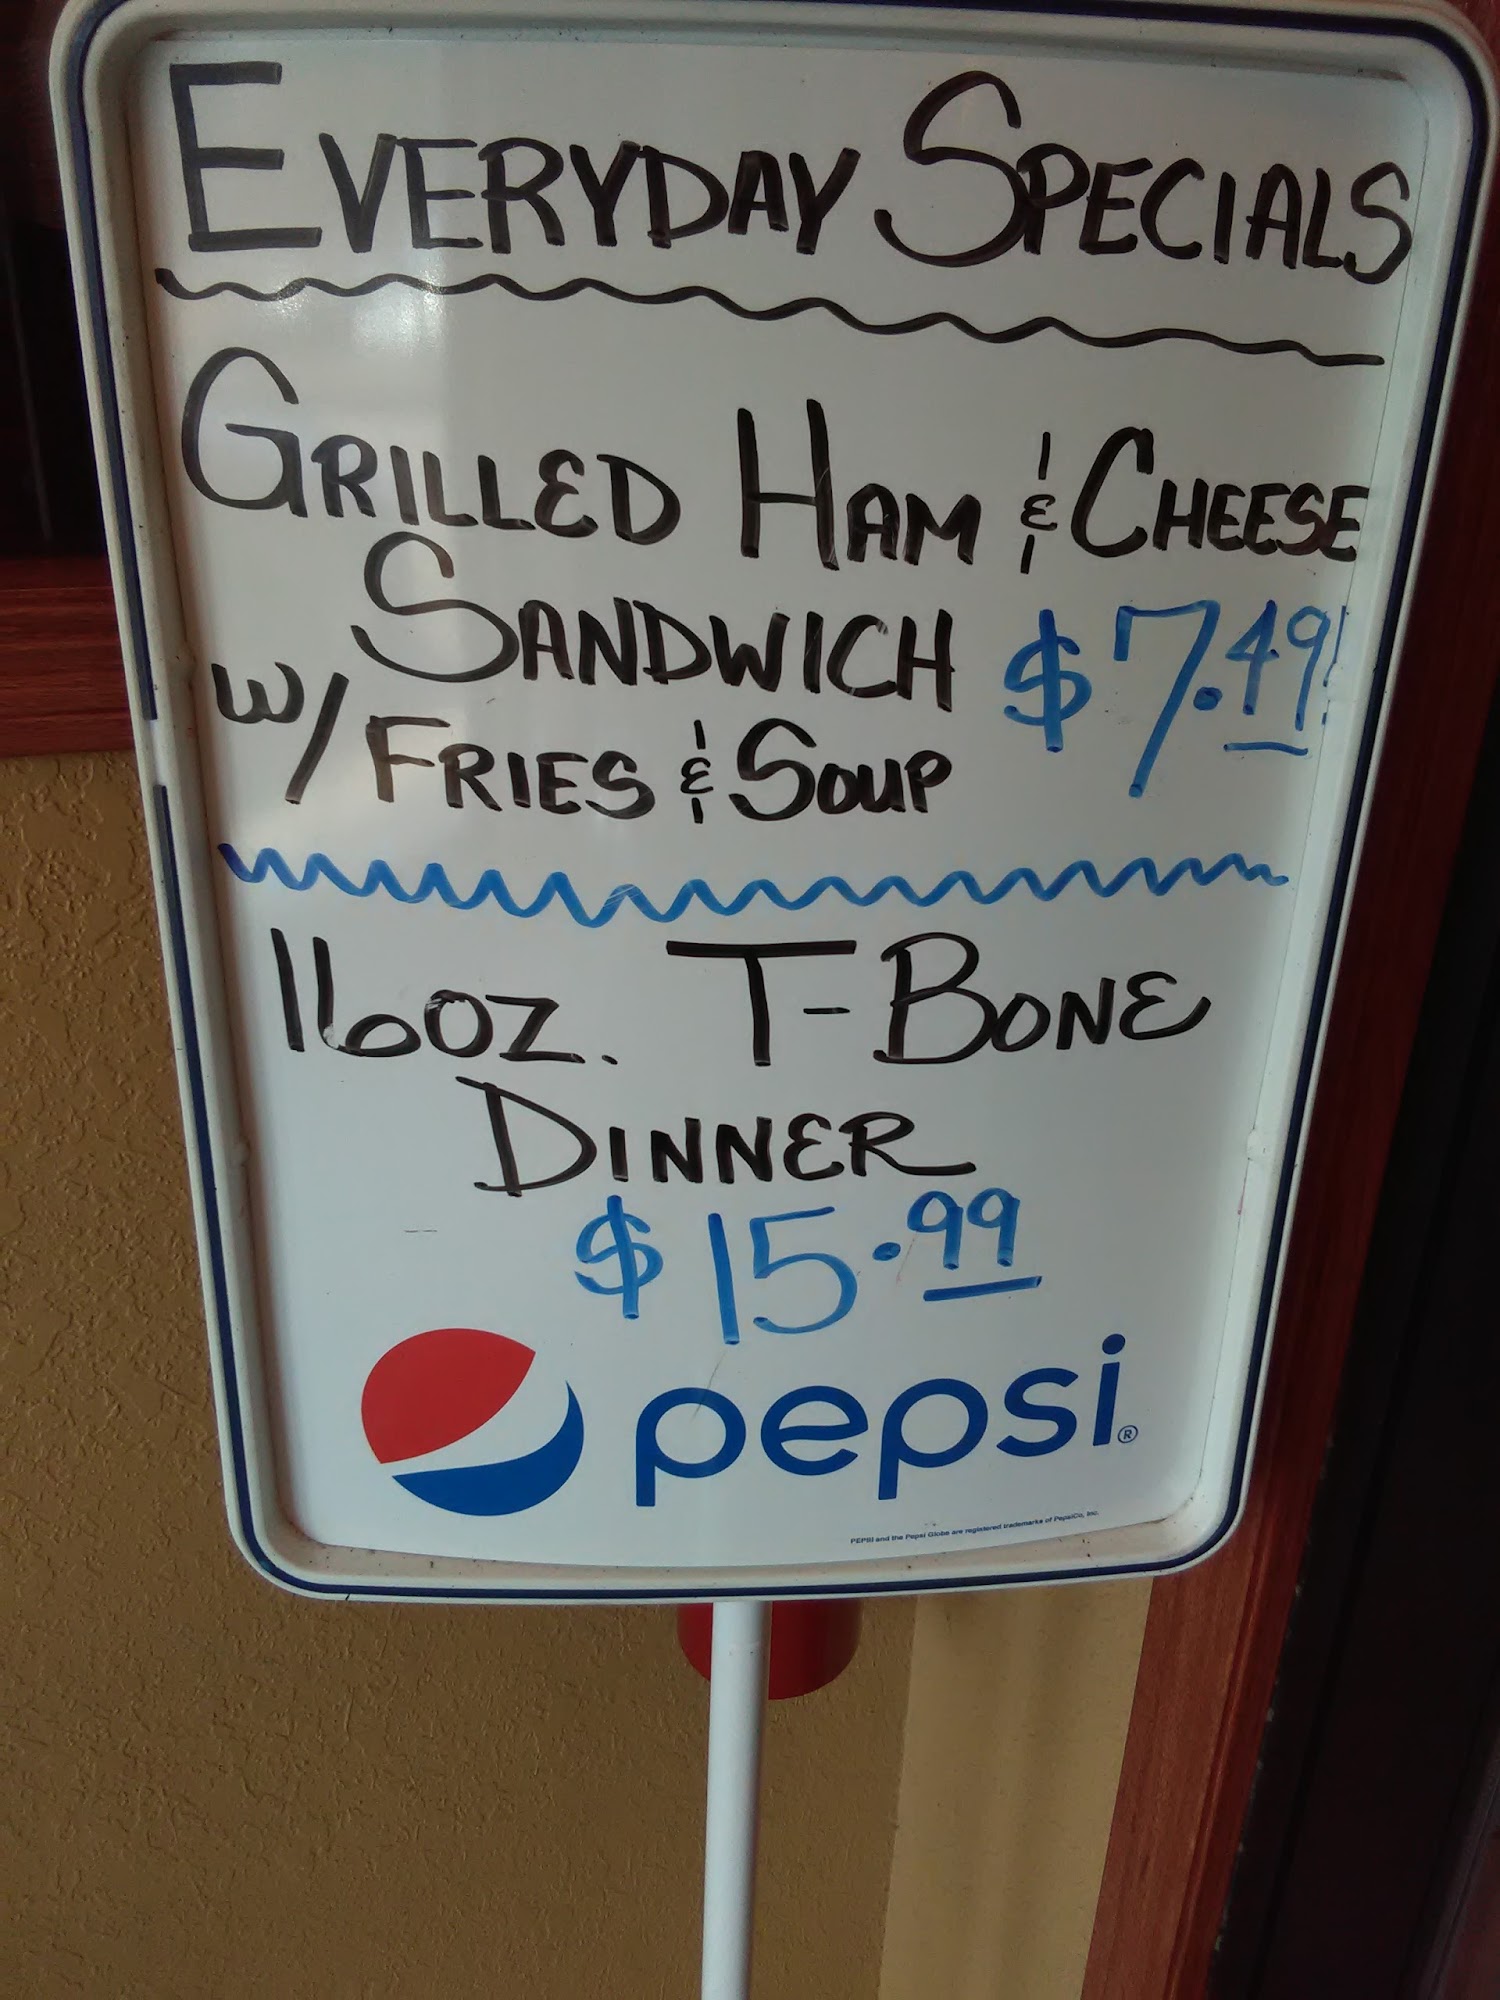 EVERYDAY SPECIALS
GRILLED HAM & CHEESE
SANDWICH $7.49!
W/ FRIES & SOUP
16OZ. T-BONE
DINNER
$15.99
pepsi®
PEPSI and the Pepsi Globe are registered trademarks of PepsiCo, Inc.